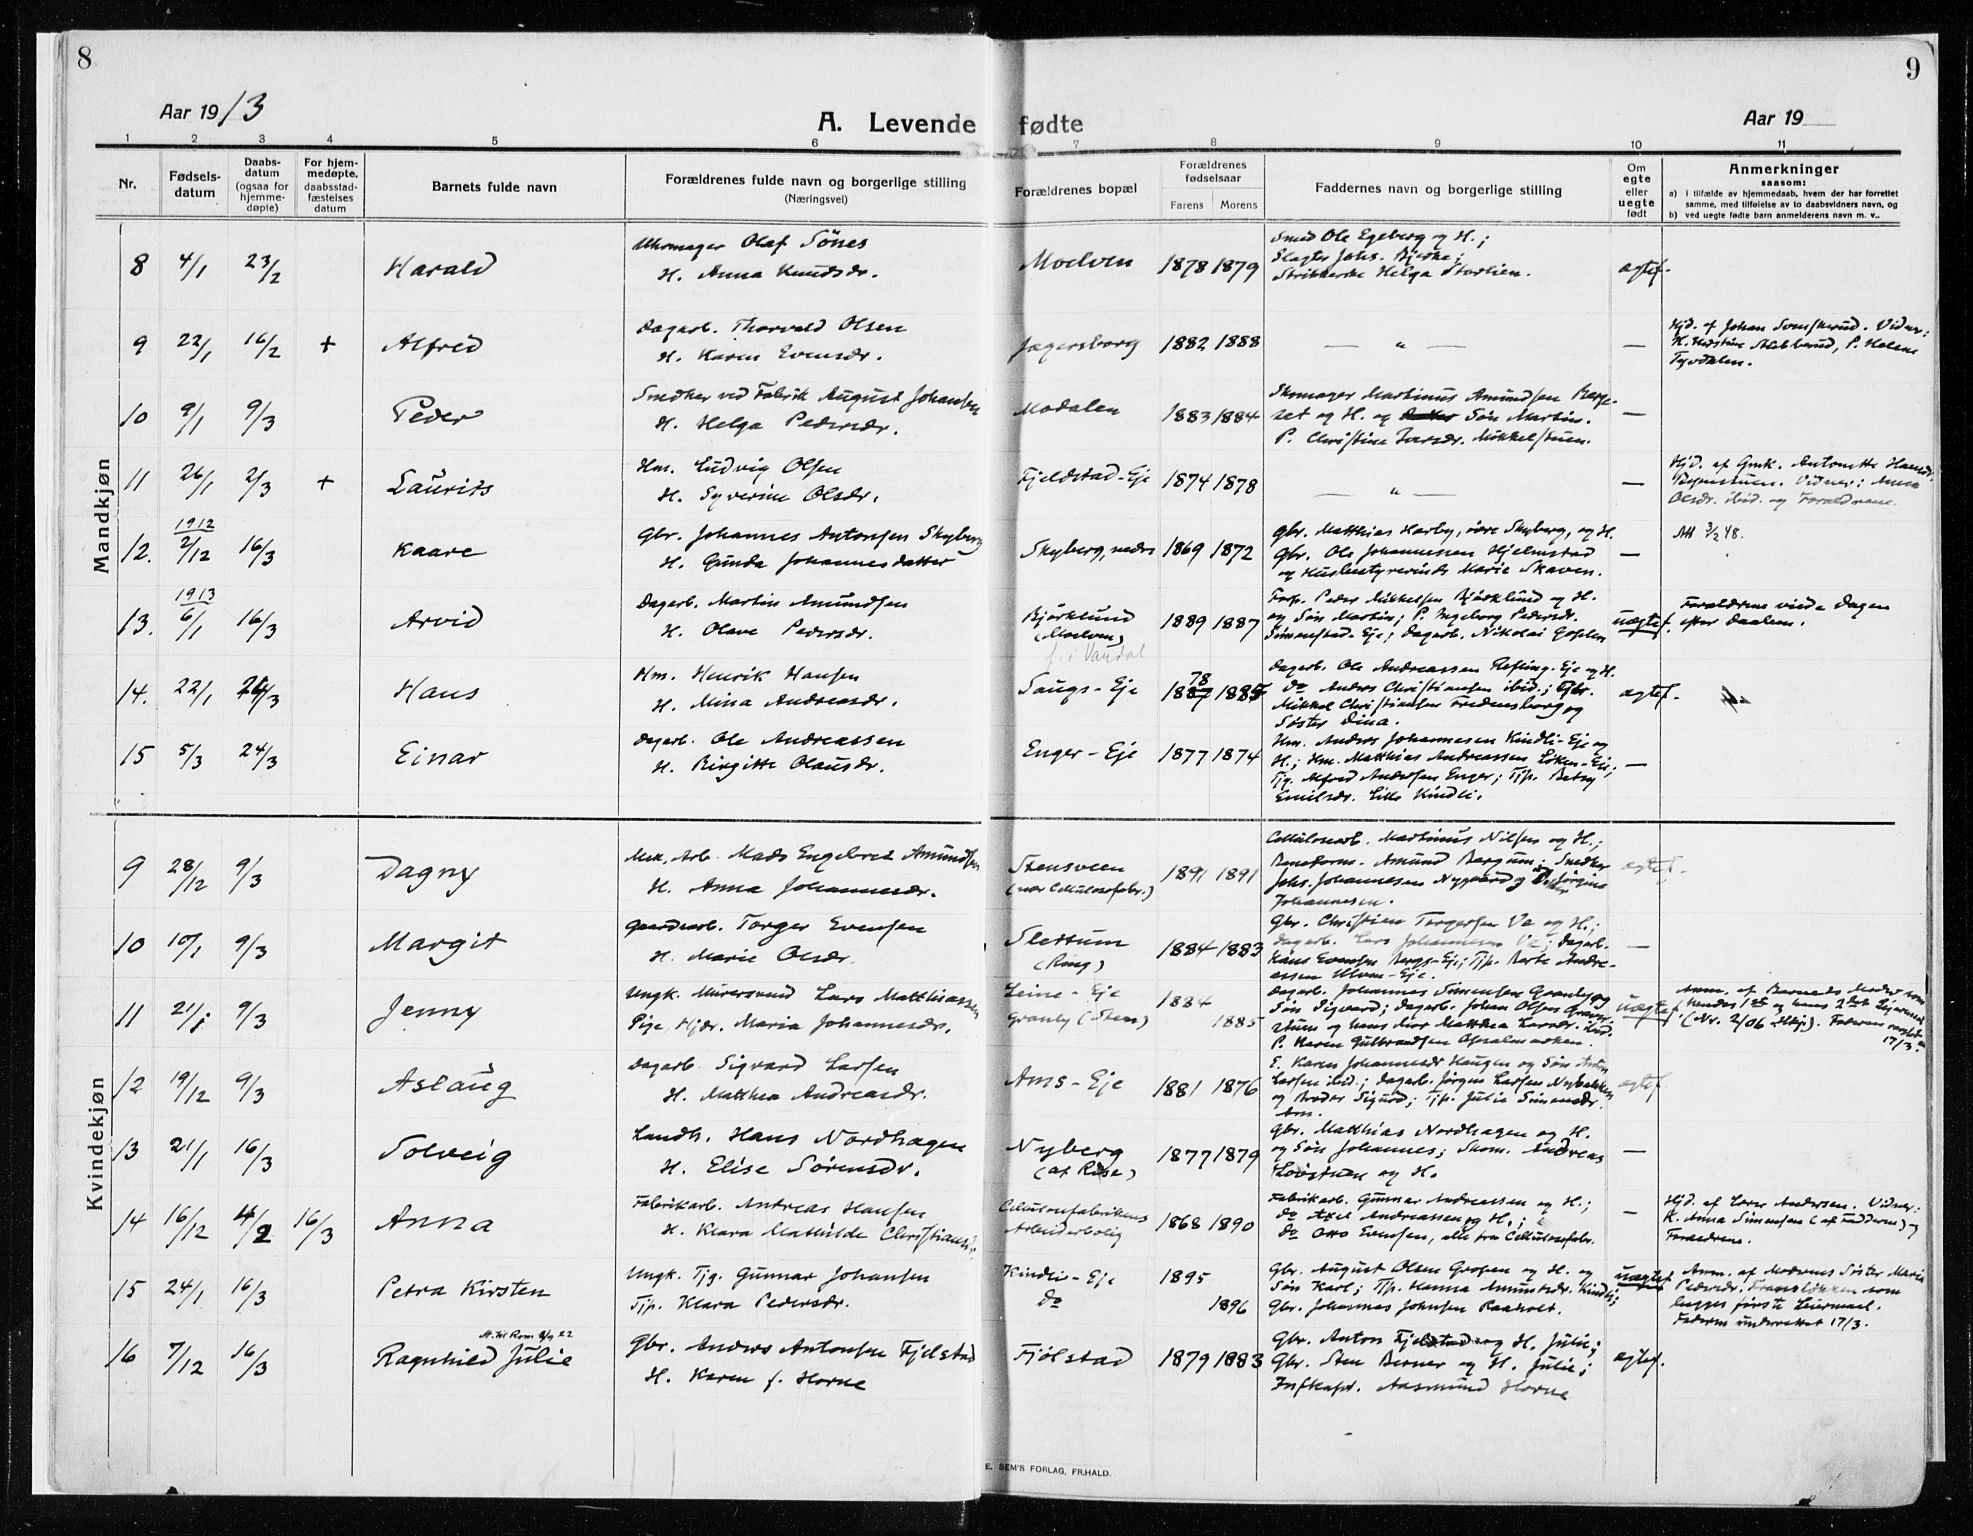 8
9
Aar 1913
A. Levende fødte
Aar 19
1 2 3 4 5 6 7 8 9 10 11
Nr.
Fødsels-
datum
Daabs-
datum
(ogsaa for
hjemme-
døpte)
For hjem-
medøpte,
daabsstad-
fæstelses
datum
Barnets fulde navn
Forældrenes fulde navn og borgerlige stilling
(Næringsvei)
Forældrenes bopæl
Forældrenes
fødselsaar
Farens Morens
Faddernes navn og borgerlige stilling
Om
egte
eller
uegte
født
Anmerkninger
saasom:
a) i tilfælde av hjemmedaab, hvem der har forrettet
samme, med tilføielse av to daabsvidners navn, og
b) ved uegte fødte barn anmelderens navn m. v..
Mandkjøn
8 4/1 23/2 Harald
Uhrmager Olaf Sønes
H. Anna Knudsdr.
Moelven 1878 1879
Smed Ole Egeberg og H.;
Slagter Johs. Bjerke;
Strikkerske Helga Stoslien.
ægtef.
9 22/1 16/2 + Alfred
Dagarb. Thorvald Olsen
H. Karen Evensdr.
Jægersborg 1882 1888
— " — —
Hjd. af Johan Svenskerud. Vidner:
Tyvdalen.
10 9/1 9/3 Peder
Snedker ved Fabrik August Johansen
H. Helga Pedersdr.
Modalen 1883 1884
Skomager Martinus Amundsen Berge-
set og H. og Søn Martin.
P. Christine Iversdr. Mikkelstuen.
—
11 26/1 2/3 + Laurits
Hm. Ludvig Olsen
H. Syverine Olsdr.
Fjeldstad-Eje 1874 1878
— " — —
Hjd. af Gmk. Antonette
Vidner: Anna
Olsdr. ibid. og Forældrene.
12. 1912 2/12 16/3 Kaare
Gbr. Johannes Antonsen Skyberg
H. Gunda Johannesdatter
Skyberg, nedre 1869 1872
Gbr. Matthias Harby, øvre Skyberg, og H.
Gbr. Ole Johannessen Hjelmstad
og Husbestyrerinde Marie Skaven.
—
Att 3/2 48.
13. 1913 6/1 16/3 Arvid
Dagarb. Martin Amundsen
H. Olave Pedersdr.
Bjørklund
(Moelven)
f. i Vardal
1889 1887
Forp. Peder Mikkelsen Bjørklund og H.
og Søn Martin; P. Ingeborg Pedersdr.
Simenstad-Eje; Dagarb. Nikolai
uægtef.
Forældrene viede dagen
efter daaben.
14. 22/1 24/3 Hans
Hm. Henrik Hansen
H. Mina Andreasdr.
Saugs-Eje 78 1887 1885
Dagarb. Ole Andreassen Refling-Eje og H.
do Anders Christiansen ibid.; Gbr.
Mikkel Christiansen Fredensborg og
Søster Dina.
ægtef.
15 5/3 24/3 Einar
Dagarb. Ole Andreassen
H. Birgitte Olausdr.
Enger-Eje 1877 1874
Hm. Anders Johannesen Kindli-Eje og
H.; Hm. Matthias Andreassen Løken-Eje;
Tjg. Alfred Andersen Enger; Tjp. Betsy
Emilsdr. Lille Kindli.
—
Kvindekjøn
9 28/12 9/3 Dagny
Mek. Arb. Mads Engebret Amundsen
H. Anna Johannesdr.
Stensveen
(nær Cellulosefabr.)
1891 1891
Cellulosearb. Martinus Nilsen og H.;
Baneform. Amund Bergum; Snedker
Johs. Johannesen Nygaard og Jørgine
Johannesen.
ægtef.
10 10/1 9/3 Margit
Gaardsarb. Torger Evensen
H. Marie Olsdr.
Slettum
(Ring)
1884 1883
Gbr. Christian Torgersen Ve og H.;
Dagarb. Lars Johannesen Ve; Dagarb.
Hans Evensen Bergs-Eje; Tjp. Berte Andre-
assen Ulven-Eje.
—
11 21/1 9/3 Jenny
Ungk. Murersvend Lars Matthiassen
Pige, Hjdr. Maria Johannesdr.
Leine-Eje
Granly (Sten)
1884
1885
Dagarb. Johannes Simensen Granly og
Søn Sigvard; Dagarb. Johan Olsen
og hans Mor Matthea Larsdr. ibid.
P. Karen Gulbrandsen
uægtef.
Anm. af Barnets Moder som
hendes 1ste og hans 2det Leiermaal
(Nr. 2/06 Mkj.). Faderen
17/3.
12 19/12 9/3 Aslaug
Dagarb. Sigvard Larsen
H. Matthea Andreasdr.
Ams-Eje 1881 1876
E. Karen Johannesdr Haugen og Søn Anton
Larsen ibid.; Dagarb. Jørgen Larsen Nybakken
og Broder Sigurd; Tjp. Julie Simensdr.
Am.
ægtef.
13 21/1 16/3 Solveig
Landh. Hans Nordhagen
H. Elise Sørensdr.
Nyberg
(af Rise)
1877 1879
Gbr. Matthias Nordhagen og H.
og Søn Johannes; Skom. Andreas
Løvstuen og H.
—
14 16/12 4/2 16/3 Anna
Fabrikarb. Andreas Hansen
H. Klara Mathilde Christiansdr.
Cellulosefabrikens
Arbeiderbolig
1868 1890
Fabrikarb. Gunnar Andreassen og H.;
do Axel Andreassen og H.;
do Otto Evensen, alle fra Cellulosefabr.
—
Hjd. af Lovre Andersen. Vidner:
K. Anna Simensen (af Fadderne) og
Forældrene.
15 24/1 16/3 Petra Kirsten
Ungk. Tjg. Gunnar Johansen
Tjp. Klara Pedersdr.
Kindli-Eje
do
1895
1896
Gbr. August Olsen Grosen og H. og
Søn Karl; Tjp. Hanna Amundsdr. Kindli;
Gbr. Johannes Johnsen Raaholt.
uægtef.
Anm. af Moderens Søster Marie
Pedersdr. Fransløkken som
begges første Leiermaal.
Faderen underrettet 17/3.
16 7/12 16/3 Ragnhild Julie
Gbr. Anders Antonsen Fjelstad
H. Karen f. Horne
Fjølstad 1879 1883
Gbr. Anton Fjelstad og H. Julie;
Gbr. Sten Berner og H. Julie;
Infkapt. Aasmund Horne
ægtef.
E. SEM'S FORLAG, FR.HALD.